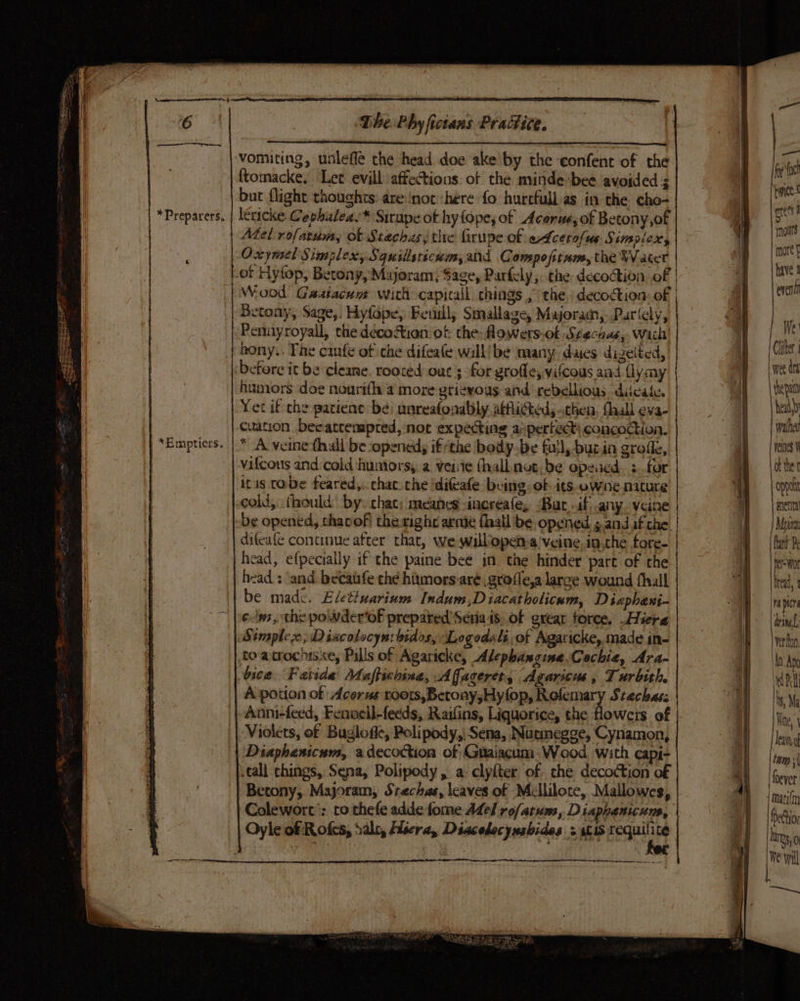 6 The Phyſicians Practice.
vomiting, unleſſe the head doe ake by the conſent of the
ſtomacke. Let evill affections of the minde bee avoided ;
but ſlight thoughts are not here ſo hurtfull as in the cho-
*Preparers. lericke. Cephalea.* Sirupe of hyſope, of Acorus, of Betony, of
Mel roſatum, of Stechas, the ſirupe of Acetoſus Simplex,
Oxymel Simplex, Squilliticum, and Compoſitum, the Water
of Hyſop, Betony, Majoram, Sage, Parſely, the decoction of
Wood Guaiacum with capitall things, the decoction of
Betony, Sage, Hyſope, Fenill, Smallage, Majoram, Parſely,
Pennyroyall, the decoction of the flowers of Stechas, with
hony. The cauſe of the diſeaſe will be many daies digeſted,
before it be cleane rooted out ; for groſſe, viſcous and ſlymy
humors doe nouriſh a more grievous and rebellious diſeaſe.
Yet if the patient be unreaſonably afflicted, then ſhall eva-
cuation bee attempted, not expecting a perfect concoction.
*Emptiers. * A veine ſhall be opened, if the body be full, but in groſſe,
viſcous and cold humors, a veine ſhall not be opened : for
it is to be feared, that the diſeaſe being of its owne nature
cold, ſhould by that meanes increaſe. But if any veine
be opened, that of the right arme ſhall be opened ; and if the
diſeaſe continue after that, we will open a veine in the fore-
head, eſpecially if the paine bee in the hinder part of the
head : and becauſe the humors are groſſe, a large wound ſhall
be made. Electuarium Indum, Diacatholicum, Diapheni-
cum, the powder of prepared Sena is of great force. Hiera
Simplex, Diacolocynthidos, Logodali, of Agaricke, made in-
to a trochiske, Pills of Agaricke, Alephangina, Cochia, Ara-
bica. Fatida Maſtichina, Aſſageret, Agaricus, Turbith.
A potion of Acorus roots, Betony, Hyſop, Roſemary Stechas,
Anni-ſeed, Fennell-ſeeds, Raiſins, Liquorice, the flowers of
Violets, of Bugloſſe, Polipody, Sena, Nutmegge, Cynamon,
Diaphenicum, a decoction of Guaiacum Wood with capi-
tall things, Sena, Polipody, a clyſter of the decoction of
Betony, Majoram, Stechas, leaves of Mellilote, Mallowes,
Colewort : to theſe adde ſome Mel roſatum, Diaphenicum,
Oyle of Roſes, ſalt, Hiera, Diacolocynthidos : it is requiſite
for